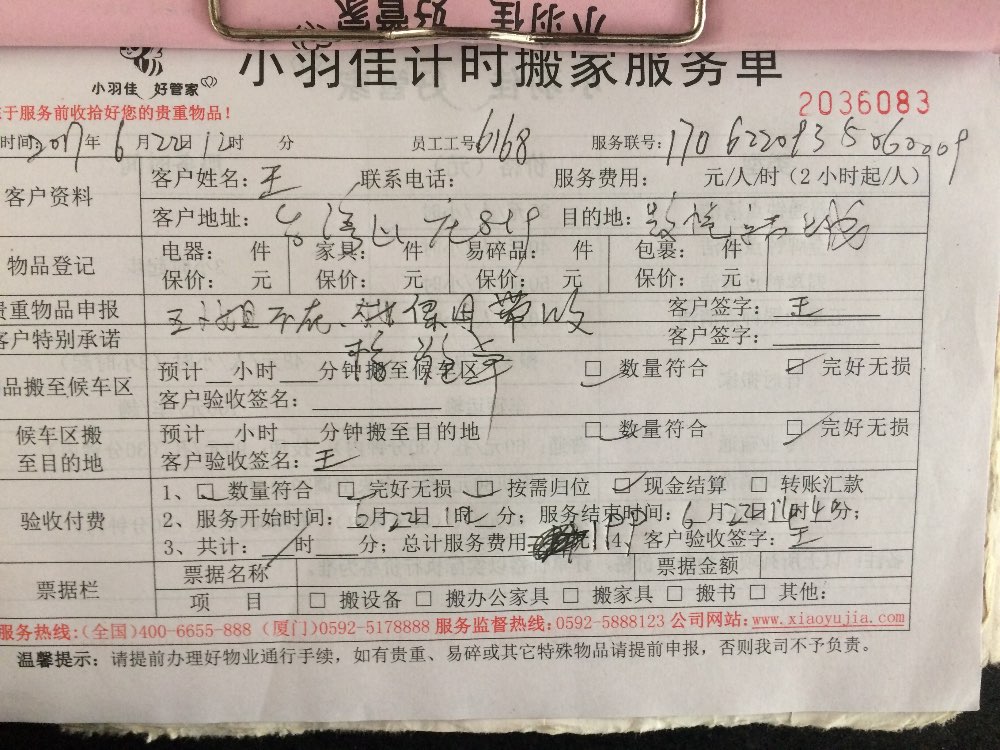 小羽佳 好管家
小羽佳 好管家
小羽佳计时搬家服务单
于服务前收拾好您的贵重物品！
2036083
时间：2017年6月22日12时 分 员工工号6168 服务联号：
客户资料
客户姓名：王 联系电话： 服务费用： 元/人/时（2小时起/人）
客户地址： 目的地：
物品登记
电器： 件 家具： 件 易碎品： 件 包裹： 件
保价： 元 保价： 元 保价： 元 保价： 元
贵重物品申报 客户签字：王
客户特别承诺 客户签字：
品搬至候车区
预计__小时___分钟搬至候车区 □ 数量符合 □ 完好无损
客户验收签名：
候车区搬至目的地
预计__小时___分钟搬至目的地 □ 数量符合 □ 完好无损
客户验收签名：王
验收付费
1、□ 数量符合 □ 完好无损 □ 按需归位 □ 现金结算 □ 转账汇款
2、服务开始时间：6月22日 时 分；服务结束时间：6月22日 时 分；
3、共计： 时 分；总计服务费用 元 4、客户验收签字：王
票据栏
票据名称 票据金额
项 目 □ 搬设备 □ 搬办公家具 □ 搬家具 □ 搬书 □ 其他：
服务热线：(全国)400-6655-888 (厦门)0592-5178888 服务监督热线：0592-5888123 公司网站：www.xiaoyujia.com
温馨提示：请提前办理好物业通行手续，如有贵重、易碎或其它特殊物品请提前申报，否则我司不予负责。